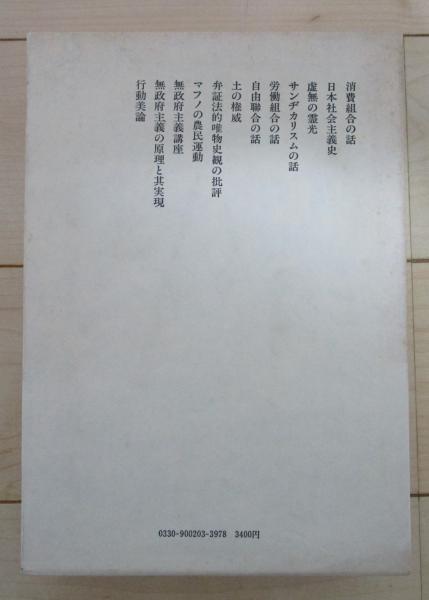 消費組合の話
日本社会主義史
虚無の霊光
サンヂカリスムの話
労働組合の話
自由聯合の話
土の権威
弁証法的唯物史観の批評
マフノの農民運動
無政府主義講座
無政府主義の原理と其実現
行動美論
0330-900203-3978 3400円